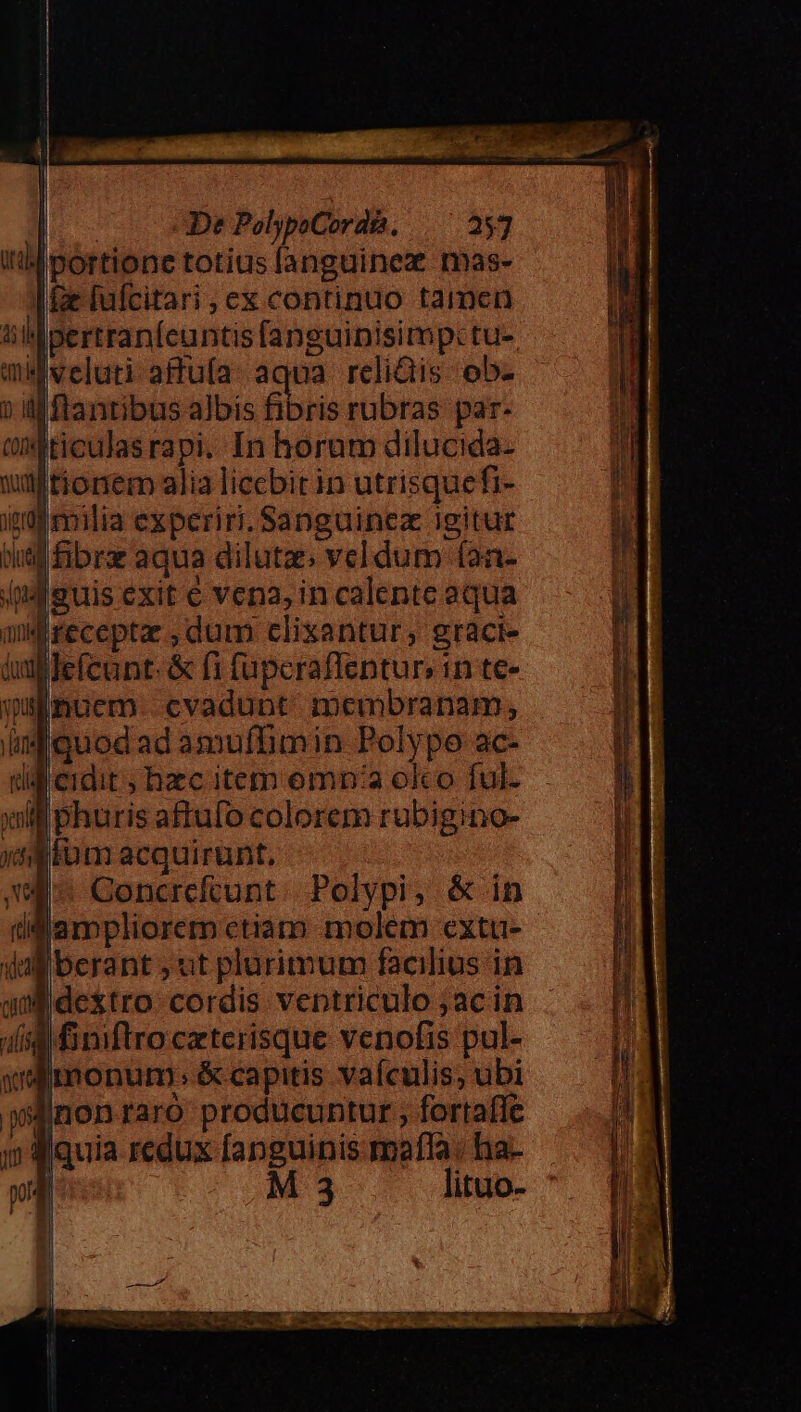 De PolypoCordis. 257
portione totius ſanguineæ maſ-
ſæ ſuſcitari, ex continuo tamen
pertranſeuntis ſanguinis impetu-
veluti affuſa aqua relictis ob-
ſtantibus albis fibris rubras par-
ticulas rapi. In horum dilucida-
tionem alia licebit in utrisque ſi-
milia experiri. Sanguineæ igitur
fibræ aqua dilutæ, vel dum ſan-
guis exit é vena, in calente aqua
receptæ, dum elixantur, graci-
leſcunt. & ſi ſuperaſſentur, in te-
nuem evadunt membranam,
quod ad amuſſim in Polypo ac-
cidit, hæc item omnia oleo ſul-
phuris affuſo colorem rubigino-
ſum acquirunt.
Concreſcunt Polypi, & in
ampliorem etiam molem extu-
berant, ut plurimum facilius in
dextro cordis ventriculo, ac in
ſiniſtro cæterisque venoſis pul-
monum, & capitis vaſculis, ubi
non raró producuntur, fortaſſe
quia redux ſanguinis maſſa, ha-
M 3 lituo-